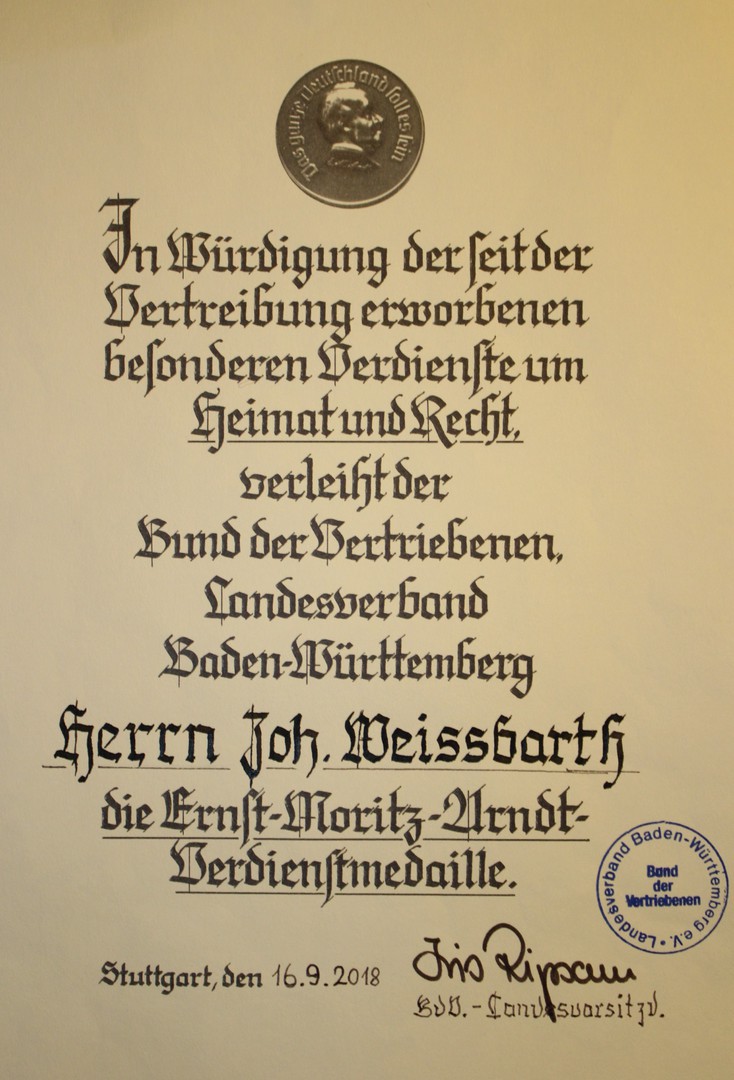 Das ganze Deutschland soll es sein
In Würdigung der seit der
Vertreibung erworbenen
besonderen Verdienste um
Heimat und Recht,
verleiht der
Bund der Vertriebenen,
Landesverband
Baden-Württemberg
Herrn Joh. Weissbarth
die Ernst-Moritz-Arndt-
Verdienstmedaille.
Landesverband Baden-Württemberg e.V.
Bund
der
Vertriebenen
Stuttgart, den 16.9.2018
Iris Ripsam
BdV.-Landesvorsitzd.